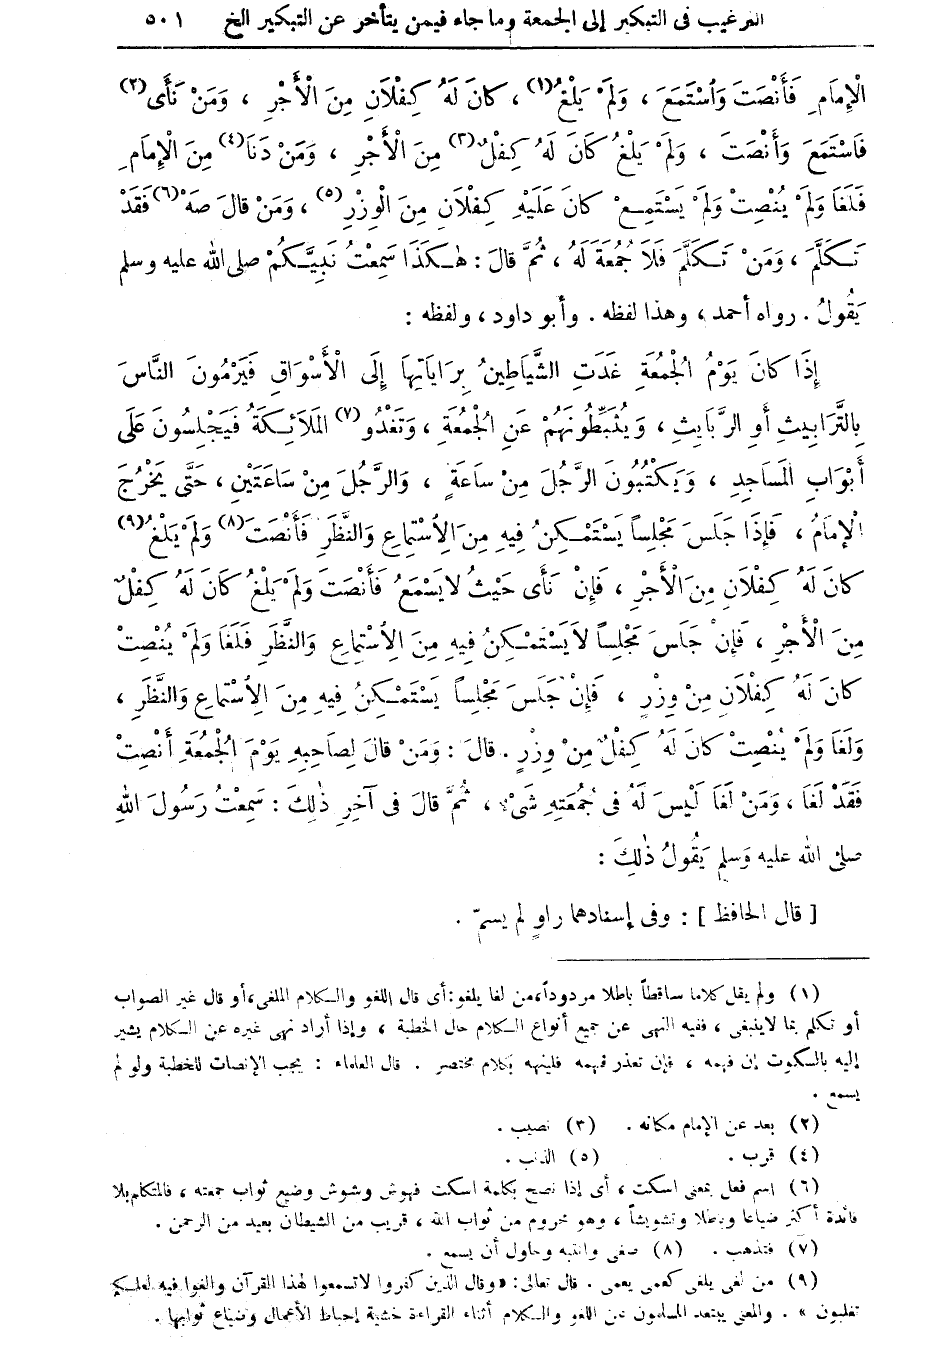 الترغيب فى التبكير إلى الجمعة وما جاء فيمن يتأخر عن التبكير الخ ٥٠١
الْإِمَامِ فَأَنْصَتَ وَاسْتَمَعَ ، وَلَمْ يَلْغُ(١) ، كانَ لَهُ كِفْلَانِ مِنَ الْأَجْرِ ، وَمَنْ نَأَى(٢)
فَاسْتَمَعَ وَأَنْصَتَ ، وَلَمْ يَلْغُ كَانَ لَهُ كِفْلٌ(٣) مِنَ الْأَجْرِ ، وَمَنْ دَنَا(٤) مِنَ الْإِمَامِ
فَلَغَا وَلَمْ يُنْصِتْ وَلَمْ يَسْتَمِعْ كانَ عَلَيْهِ كِفْلَانِ مِنَ الْوِزْرِ(٥) ، وَمَنْ قالَ صَهْ(٦) فَقَدْ
تَكَلَّمَ ، وَمَنْ تَكَلَّمَ فَلَا جُمُعَةَ لَهُ ، ثُمَّ قالَ : هٰكَذَا سَمِعْتُ نَبِيَّكُمْ صلى الله عليه وسلم
يَقُولُ . رواه أحمد ، وهذا لفظه . وأبو داود ، ولفظه :
إِذَا كانَ يَوْمُ الْجُمُعَةِ غَدَتِ الشَّيَاطِينُ بِرَايَاتِهَا إِلَى الْأَسْوَاقِ فَيَرْمُونَ النَّاسَ
بِالتَّرَابِيثِ أَوِ الرَّبَايِثِ ، وَيُثَبِّطُونَهُمْ عَنِ الْجُمُعَةِ ، وَتَغْدُو(٧) الْمَلَائِكَةُ فَيَجْلِسُونَ عَلَى
أَبْوَابِ الْمَسَاجِدِ ، وَيَكْتُبُونَ الرَّجُلَ مِنْ سَاعَةٍ ، وَالرَّجُلَ مِنْ سَاعَتَيْنِ ، حَتَّى يَخْرُجَ
الْإِمَامُ ، فَإِذَا جَلَسَ مَجْلِساً يَسْتَمْكِنُ فِيهِ مِنَ الِاسْتِمَاعِ وَالنَّظَرِ فَأَنْصَتَ(٨) وَلَمْ يَلْغُ(٩)
كانَ لَهُ كِفْلَانِ مِنَ الْأَجْرِ ، فَإِنْ نَأَى حَيْثُ لَا يَسْمَعُ فَأَنْصَتَ وَلَمْ يَلْغُ كَانَ لَهُ كِفْلٌ
مِنَ الْأَجْرِ ، فَإِنْ جَلَسَ مَجْلِساً لَا يَسْتَمْكِنُ فِيهِ مِنَ الِاسْتِمَاعِ وَالنَّظَرِ فَلَغَا وَلَمْ يُنْصِتْ
كانَ لَهُ كِفْلَانِ مِنْ وِزْرٍ ، فَإِنْ جَلَسَ مَجْلِساً يَسْتَمْكِنُ فِيهِ مِنَ الِاسْتِمَاعِ وَالنَّظَرِ ،
وَلَغَا وَلَمْ يُنْصِتْ كانَ لَهُ كِفْلٌ مِنْ وِزْرٍ . قالَ : وَمَنْ قالَ لِصَاحِبِهِ يَوْمَ الْجُمُعَةِ أَنْصِتْ
فَقَدْ لَغَا ، وَمَنْ لَغَا لَيْسَ لَهُ فى جُمُعَتِهِ شَىْءٌ ، ثُمَّ قالَ فى آخِرِ ذٰلِكَ : سَمِعْتُ رَسُولَ اللهِ
صلى الله عليه وَسلم يَقُولُ ذٰلِكَ :
[ قال الحافظ ] : وفى إسنادهما راوٍ لم يسمّ .
(١) ولم يقل كلاما ساقطاً باطلا مردوداً ، من لغا يلغو : أى قال اللغو والكلام الملغى ، أو قال غير الصواب
أو تكلم بما لاينبغى ، ففيه النهى عن جميع أنواع الكلام حال الخطبة ، وإذا أراد نهى غيره عن الكلام يشير
إليه بالسكوت إن فهمه ، فإن تعذر فهمه فلينهه بكلام مختصر . قال العلماء : يجب الإنصات للخطبة ولو لم
يسمع .
(٢) بعد عن الإمام مكانه . (٣) نصيب .
(٤) قرب . (٥) الذنب .
(٦) اسم فعل بمعنى اسكت ، أى إذا نصح بكلمة اسكت فهوش وشوش وضيع ثواب جمعته ، فالمتكلم بلا
فائدة أكثر ضياعا وباطلا وتشويشاً ، وهو محروم من ثواب الله ، قريب من الشيطان بعيد من الرحمن .
(٧) فتذهب . (٨) صغى وانتبه وحاول أن يسمع .
(٩) من لغى يلغى كعمى يعمى . قال تعالى : «وقال الذين كفروا لاتسمعوا لهذا القرآن والغوا فيه لعلكم
تغلبون » . والمعنى يبتعد المسلمون عن اللغو والكلام أثناء القراءة خشية إحباط الأعمال وضياع ثوابها .